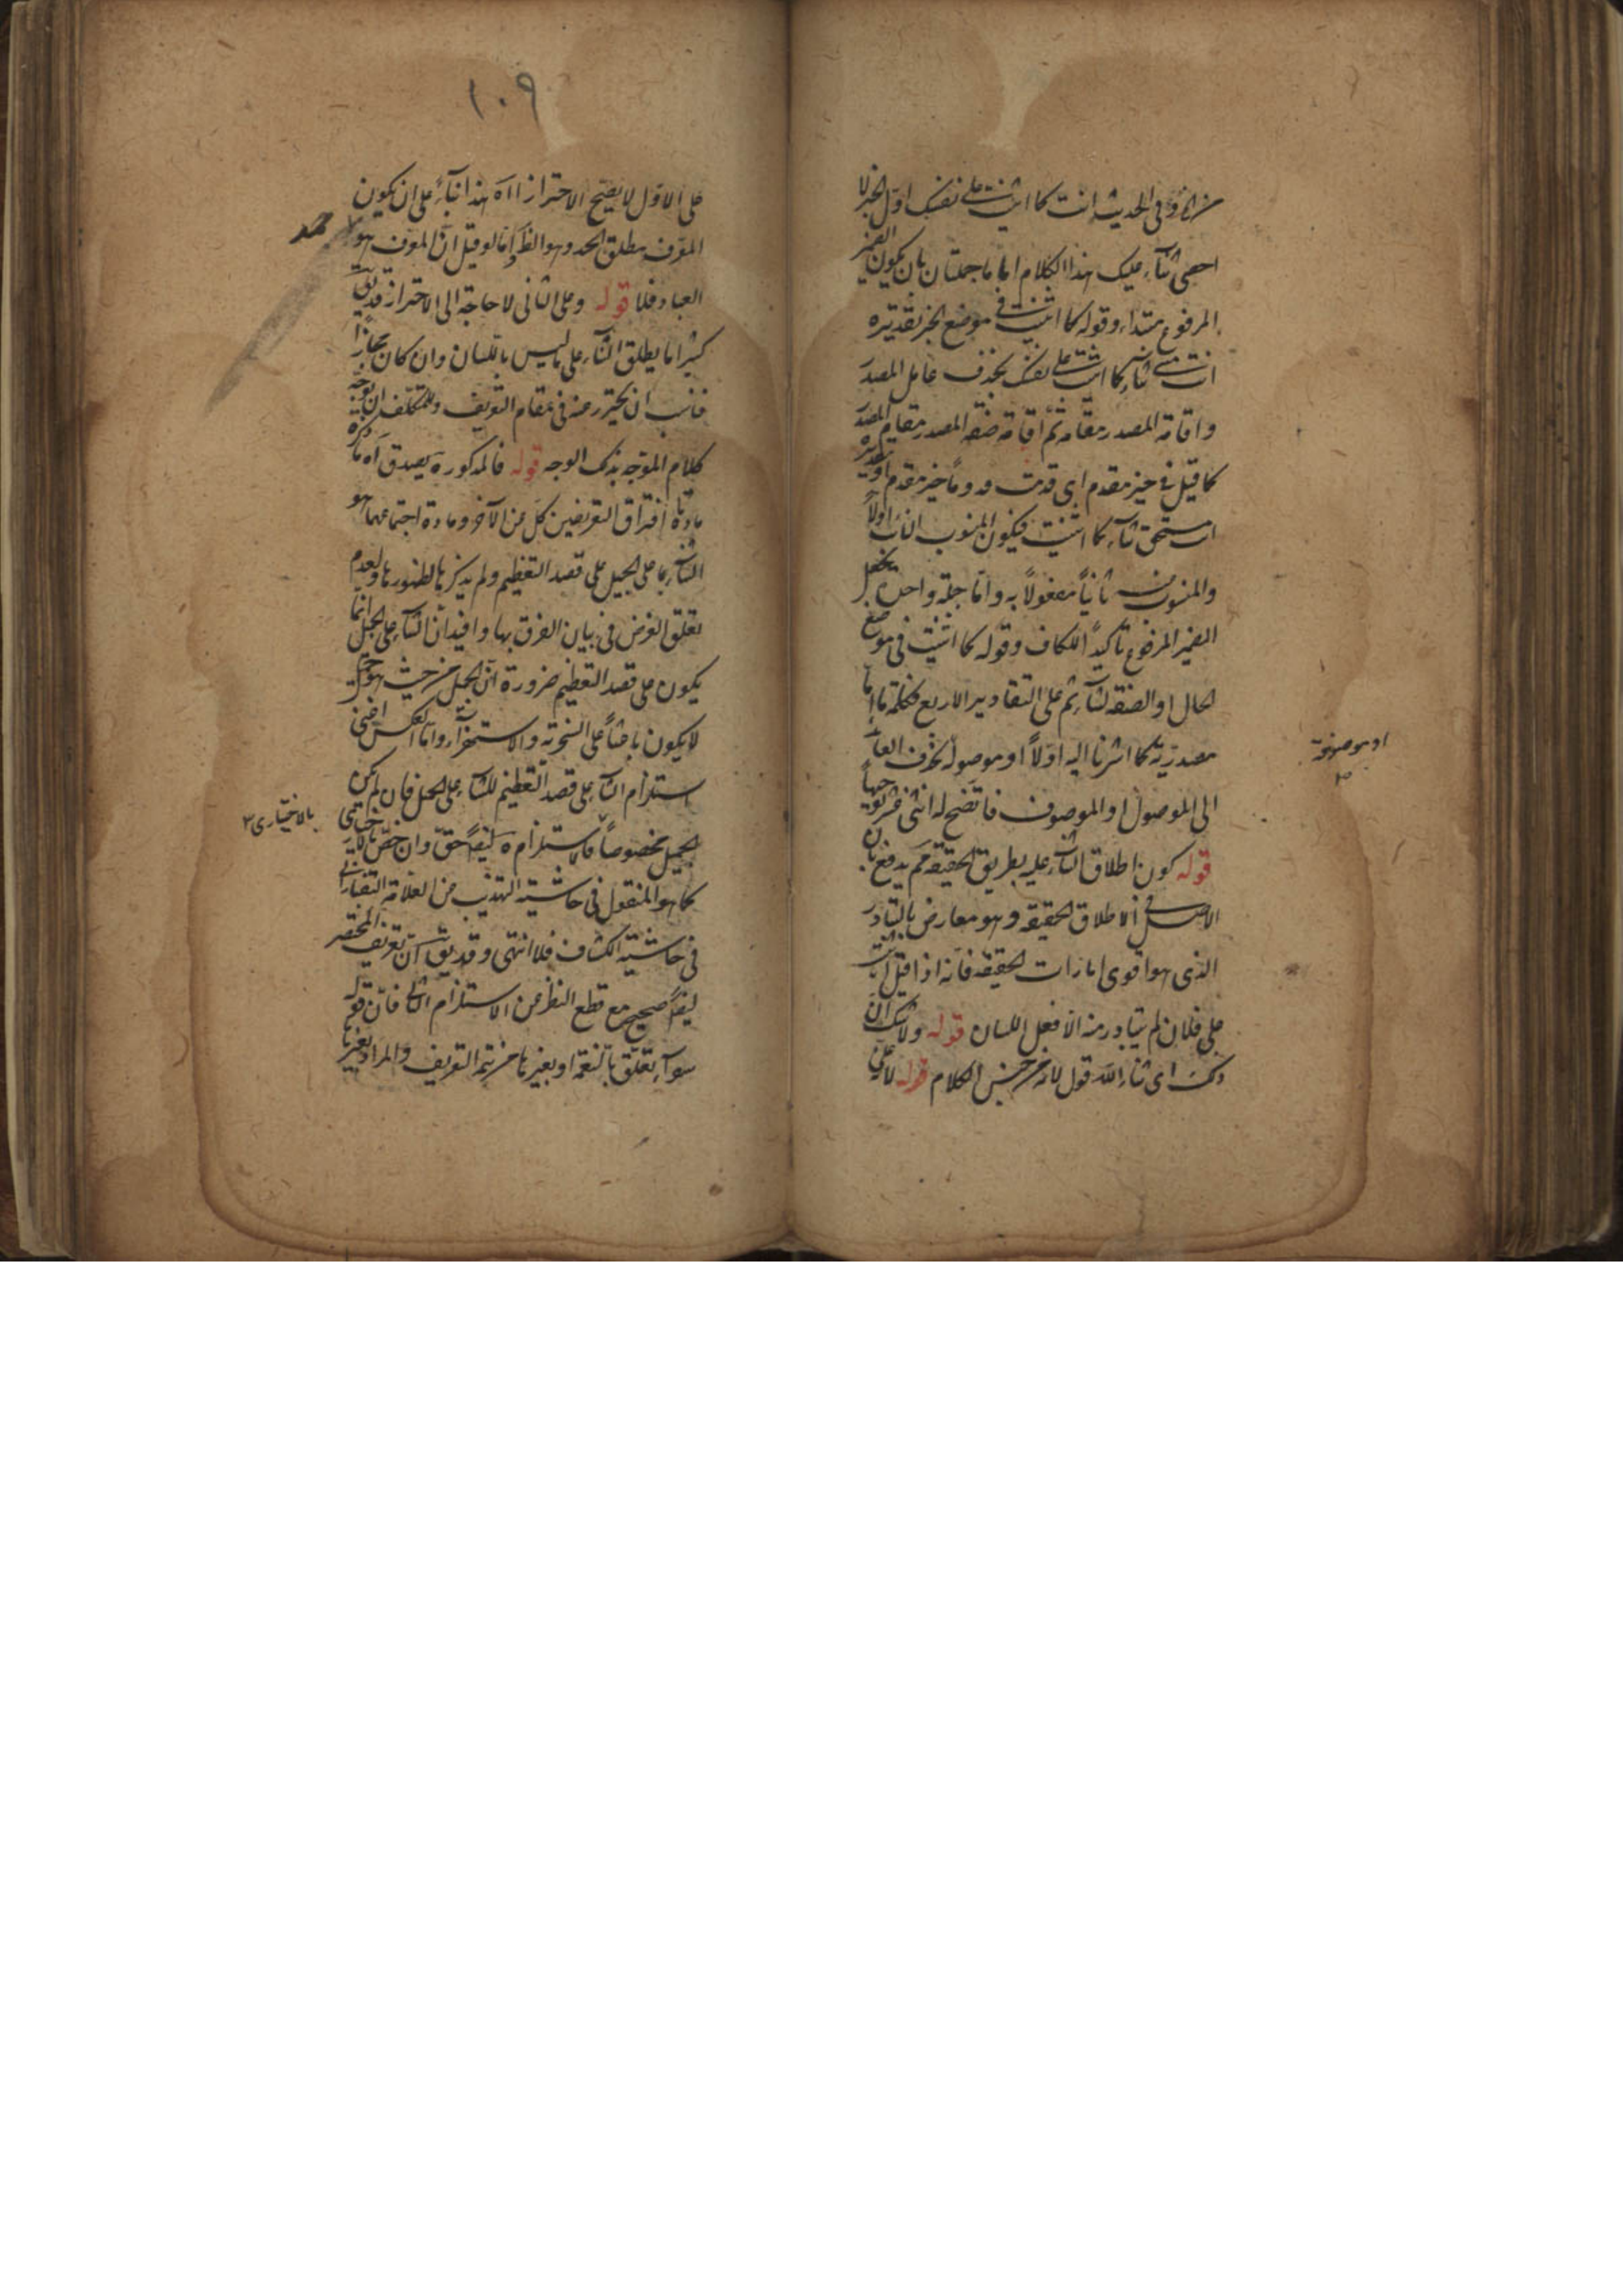 قوله في الحديث انت كما اثنيت على نفسك اول الخبر لا
احصي ثناء عليك هذا الكلام اما جملتان بان يكون الضمير
المرفوع مبتداء وقوله كما اثنيت في موضع الخبر بتقديره
انت ثناء كما اثنيت على نفسك بحذف عامل المصدر
واقامة المصدر مقامه ثم اقامة صفة المصدر مقام المصدر
كما قيل في خير مقدم اى قدمت قدوما خير مقدم او تقديره
انت مستحق ثناء كما اثنيت فيكون المنسوب اولاً
والمنسوب ثانياً مفعولاً به واما جملة واحدة بجعل
الضمير المرفوع تأكيداً للكاف وقوله كما اثنيت في موضع
الحال او الصفة لثناء ثم على التقادير الاربع فكلمة ما إما
مصدرية كما اشرنا اليه اولاً او موصولة بحذف العائد
او موصوفة
الى الموصول او الموصوف فاتضح له اثنى عشر توجيهاً
قوله كون اطلاق الثناء عليه بطريق الحقيقة ثم يدفع بان
الاصل في الاطلاق الحقيقة وهو معارض بالتبادر
الذى هو اقوى امارات الحقيقة فانه اذا قيل اثنيت
على فلان لم يتبادر منه الا فعل اللسان قوله ولا شك ان
ذلك اى ثناء الله قول لانه من جنس الكلام قوله لا يخفى
١٠٩
على الاول لا يصح الاحتراز اه هذا بناء على ان يكون
المعرف مطلق الحمد وهو الظ واما لو قيل ان المعرف هو
حمد
العباد فلا قوله وعلى الثاني لا حاجة الى الاحتراز قد يق
كثيرا ما يطلق الثناء على ما ليس باللسان وان كان مجازا
فناسب ان يحترز عنه في مقام التعريف وللمتكلف ان يوجه
كلام الموجه بذلك الوجه قوله فالمذكورة يصدق اه ما ذكره
مادتا افتراق التعريفين كل عن الآخر ومادة اجتماعهما هو
الثناء بها على الجميل على قصد التعظيم ولم يذكرها لظهورها ولعدم
تعلق الغرض في بيان الفرق بها وافيد ان الثناء على الجميل انما
يكون على قصد التعظيم ضرورة ان الجميل من حيث هو جميل
لا يكون باعثاً على السخرية والاستهزاء واما العكس اعنى
استلزام الثناء على قصد التعظيم للثناء على الجميل فان لم يكن
الجميل مخصوصاً فالاستلزام ه ايضاً حق وان خص بالاختيارى
بالاختيارى ٢
كما هو المنقول في حاشية التهذيب من العلامة التفتازاني
في حاشية الكشاف فلا انتهى وقد يق ان تعريف المختصر
ايضاً صحيح مع قطع النظر عن الاستلزام الثاني فان قوله
سواء تعلق بالنعمة او بغيرها من تتمة التعريف والمراد بغيرها